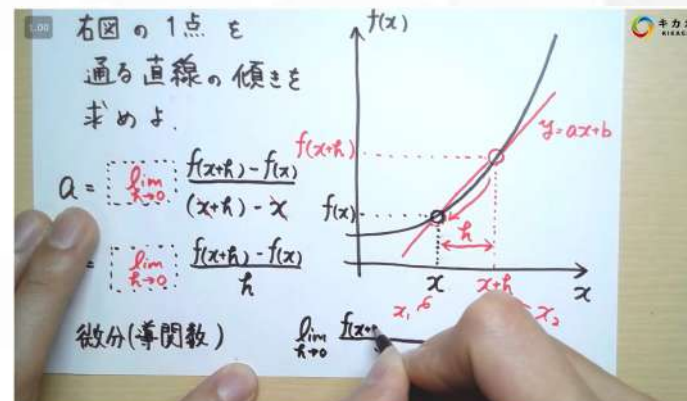 1.00
右図の1点を
通る直線の傾きを
求めよ.
a = lim h→0 f(x+h) - f(x) / (x+h) - x
= lim h→0 f(x+h) - f(x) / h
微分(導関数) lim h→0 f(x+
f(x)
y=ax+b
f(x+h)
f(x)
h
x
x+h
x
x₁
x₂
キカ
KIKAG